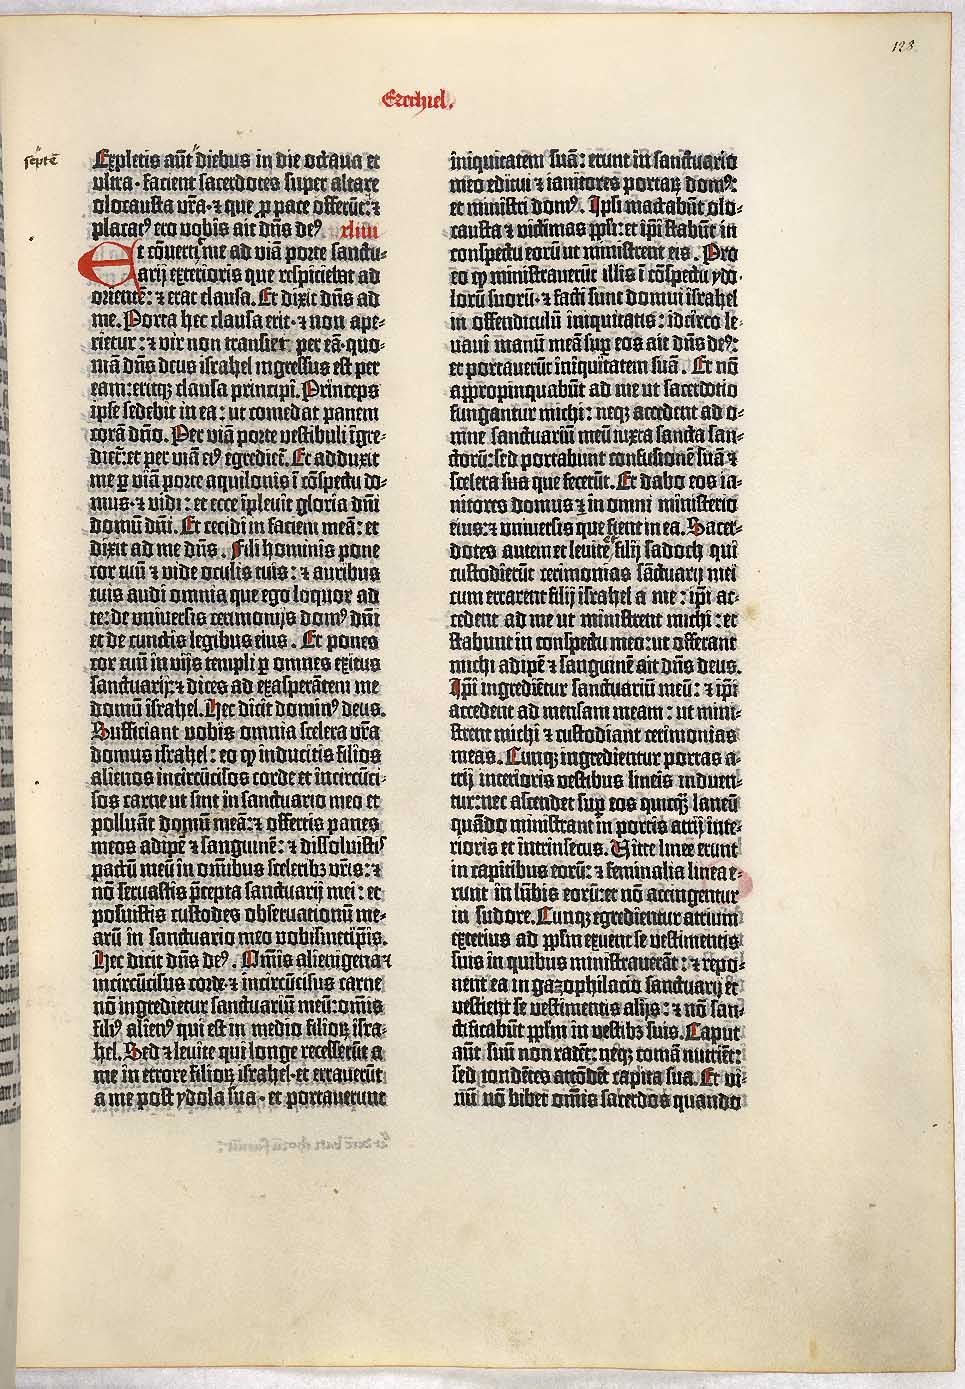 123
Ezechiel.
septē
Expletis aūt diebus in die octaua et
vltra · facient sacerdotes super altare
olocausta vr̄a · ⁊ que ꝓ pace offerūt: ⁊
placatꝰ ero vobis ait dn̄s deꝰ. xliiii
Et cōuertit me ad viā porte sanctu-
arij exterioris que respiciebat ad
orientē: ⁊ erat clausa. Et dixit dn̄s ad
me. Porta hec clausa erit · ⁊ non ape-
rietur: ⁊ vir non transiet per eā · quo-
niā dn̄s deus israhel ingressus est per
eam: eritqꝫ clausa principi. Princeps
ipse sedebit in ea: ut comedat panem
corā dn̄o. Per viā porte vestibuli īgre-
diet᷑: et per viā eiꝰ egrediet᷑. Et adduxit
me ꝑ viā porte aquilonis ī cōspectu do-
mus · ⁊ vidi: et ecce īpleuit gloria dn̄i
domū dn̄i. Et cecidi in faciem meā: et
dixit ad me dn̄s. Fili hominis pone
cor tuū ⁊ vide oculis tuis: ⁊ auribus
tuis audi omnia que ego loquor ad
te: de vniuersis cerimonijs domꝰ dn̄i
et de cunctis legibus eius. Et pones
cor tuū in vijs templi ꝑ omnes exitus
sanctuarij: ⁊ dices ad exasperātem me
domū israhel. Hec dicit dominꝰ deus.
Sufficiant vobis omnia scelera vr̄a
domus israhel: eo ꝙ inducitis filios
alienos incircūcisos corde et incircūci-
sos carne ut sint in sanctuario meo et
polluāt domū meā: ⁊ offertis panes
meos adipē ⁊ sanguinē: ⁊ dissoluistis
pactū meū in omībus sceleribꝫ vr̄is: ⁊
nō seruastis p̄cepta sanctuarij mei: et
posuistis custodes obseruationū me-
arū in sanctuario meo vobismetip̄is.
Hec dicit dn̄s deꝰ. Omīs alienigena ⁊
incircūcisus corde · ⁊ incircūcisus carne
nō ingredietur sanctuariū meū: omīs
filiꝰ alienꝰ qui est in medio filioꝝ isra-
hel. Sed ⁊ leuite qui longe recesserūt a
me in errore filioꝝ israhel · et errauerūt
a me post ydola sua · et portauerunt
iniquitatem suā: erunt in sanctuario
meo editui ⁊ ianitores portaꝝ domꝰ:
et ministri domꝰ. Ipsi mactabūt olo-
causta ⁊ victimas pp̄li: et ip̄i stabūt in
conspectu eorū ut ministrent eis. Pro
eo ꝙ ministrauerūt illis ī cōspectu ydo-
lorū suorū · ⁊ facti sunt domui israhel
in offendiculū iniquitatis: idcirco le-
uaui manū meā suꝑ eos ait dn̄s deꝰ:
et portauerūt iniquitatem suā. Et nō
appropinquabūt ad me ut sacerdotio
fungantur michi: neqꝫ accedent ad o-
mne sanctuariū meū iuxta sancta san-
ctorū: sed portabunt confusionē suā ⁊
scelera sua que fecerūt. Et dabo eos ia-
nitores domus ⁊ in omni ministerio
eius: ⁊ vniuersis que fient in ea. Sacer-
dotes autem et leuite filij sadoch qui
custodierūt cerimonias sāctuarij mei
cum errarent filij israhel a me: ip̄i ac-
cedent ad me ut ministrent michi: et
stabunt in conspectu meo: ut offerant
michi adipē ⁊ sanguinē ait dn̄s deus.
Ip̄i ingrediētur sanctuariū meū: ⁊ ip̄i
accedent ad mensam meam: ut mini-
strent michi ⁊ custodiant cerimonias
meas. Cunqꝫ ingredientur portas a-
trij interioris vestibus lineis induen-
tur: nec ascendet suꝑ eos quicqꝫ laneū
quādo ministrant in portis atrij inte-
rioris et intrinsecus. Vitte linee erunt
in capitibus eorū: ⁊ feminalia linea e-
runt in lūbis eorū: et nō accingentur
in sudore. Cunqꝫ egredientur atrium
exterius ad pp̄lm exuent se vestimentis
suis in quibus ministrauerāt: ⁊ repo-
nent ea in gazophilacio sanctuarij et
vestient se vestimentis alijs: ⁊ nō san-
ctificabūt pp̄lm in vestibꝫ suis. Caput
aūt suū non radēt: neqꝫ comā nutriēt:
sed tondētes attōdēt capita sua. Et vi-
nū nō bibet omīs sacerdos quando